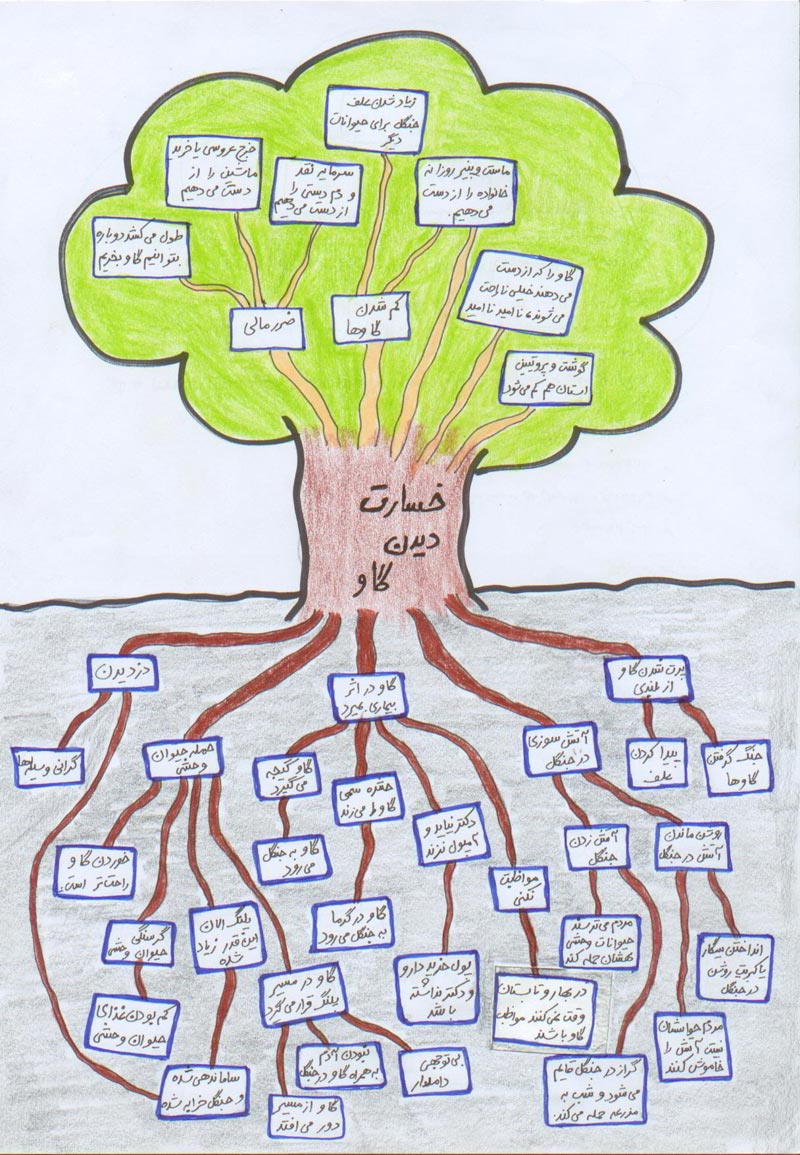 زیاد شدن علف
جنگل برای حیوانات
دیگر
خرج عروسی یا خرید
ماشین را از
دست می دهیم
سرمایه نقد
و دم دستی را
از دست می دهیم
ماست و پنیر روزانه
خانواده را از دست
می دهیم.
طول می کشد دوباره
بتوانیم گاو بخریم
ضرر مالی
کم شدن
گاوها
گاو را که از دست
می دهند خیلی ناراحت
می شوند، نا امید نا امید
گوشت و پروتئین
استان هم کم می شود
خسارت
دیدن
گاو
دزدیدن
گاو در اثر
بیماری بمیرد
پرت شدن گاو
از بلندی
گرانی وسیله‌ها
حمله حیوان
وحشی
گاو کنجه
می گیرد
حشره سمی
گاو را می زند
آتش سوزی
در جنگل
پیدا کردن
علف
جنگ گرفتن
گاوها
خوردن گاو
راحت‌تر است.
گاو به جنگل
می رود
دکتر نیاید و
آمپول نزند
مواظبت
نکنی
آتش زدن
جنگل
روشن ماندن
آتش در جنگل
گرسنگی
حیوان وحشی
پلنگ الان
این قدر زیاد
شده
گاو در گرما
به جنگل می رود
پول خرید دارو
و دکتر نداشته
باشد
مردم می ترسند
حیوانات وحشی
بهشان حمله کند
انداختن سیگار
یا کبریت روشن
در جنگل
کم بودن غذای
حیوان وحشی
گاو در مسیر
پلنگ قرار می گیرد
در بهار و تابستان
وقت نمی کنند مواظب
گاو باشند
مردم حواسشان
نیست آتش را
خاموش کنند
ساماندهی شده
و جنگل خرابه شده
نبودن آدم
به همراه گاو در جنگل
بی توجهی
دامدار
گاو از مسیر
دور می افتد
گراز در جنگل قایم
می شود و شب به
مزرعه حمله می کند.